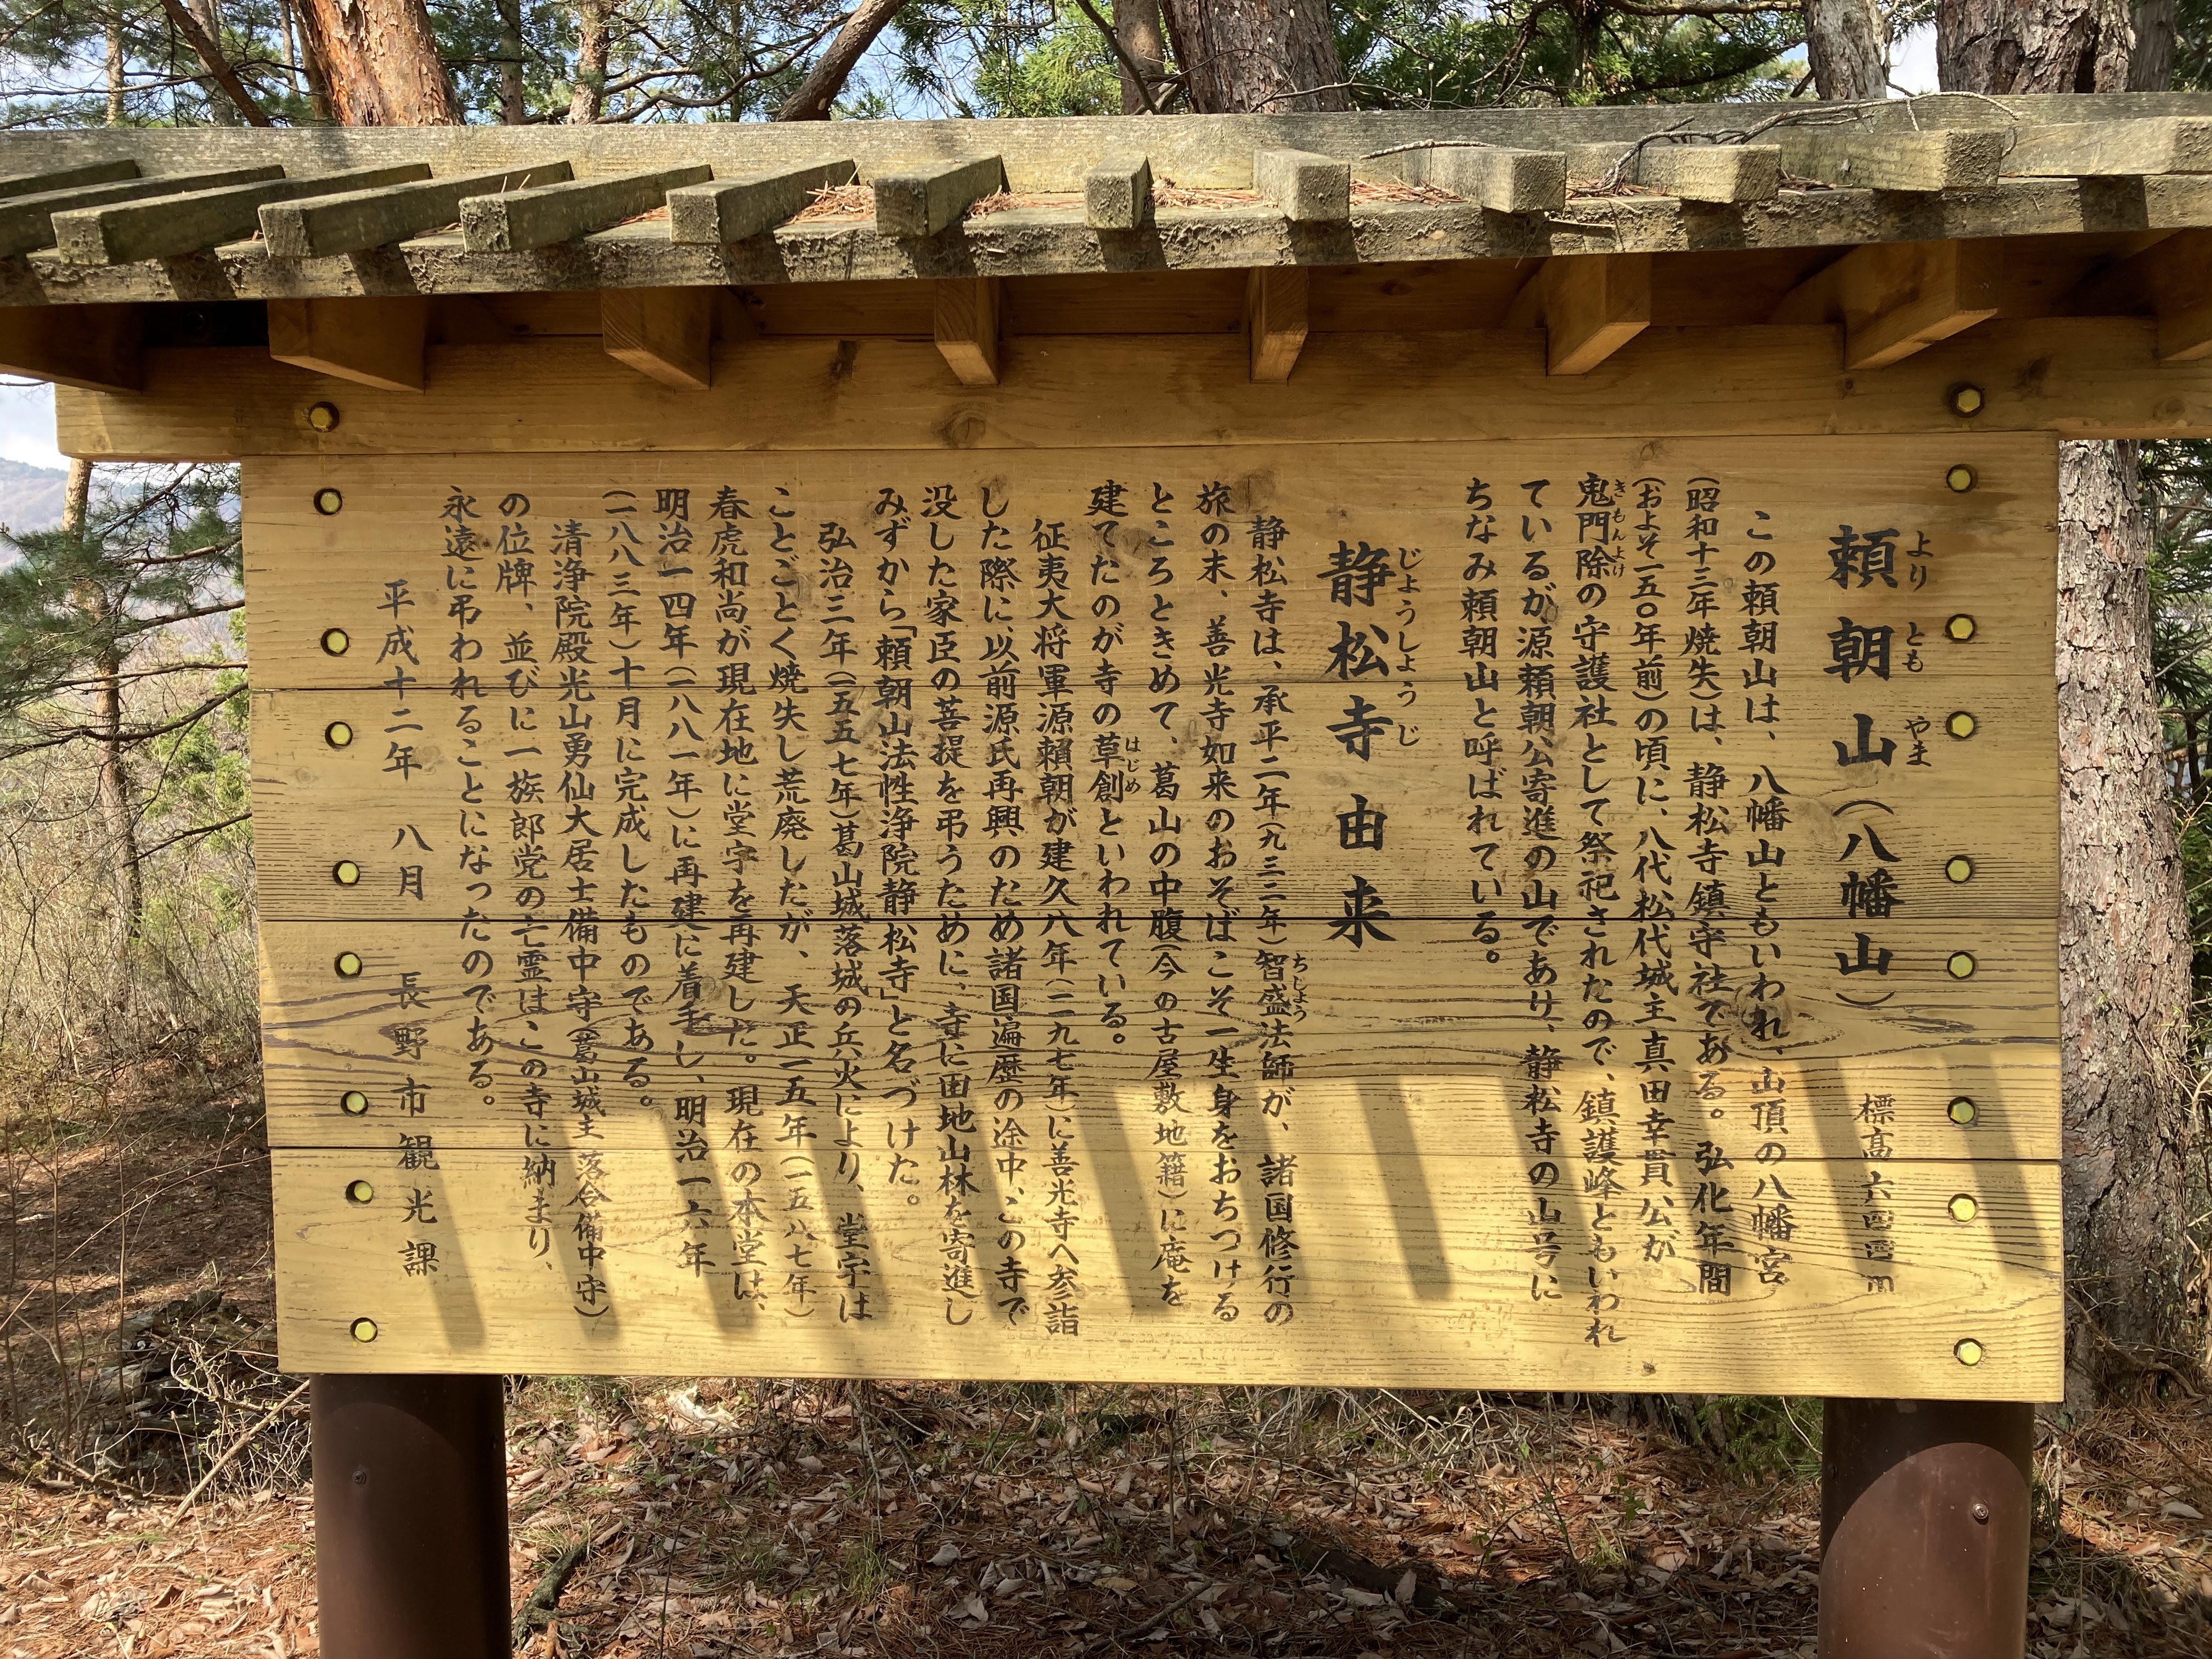 頼朝山(八幡山) 標高六四四m
よりともやま
この頼朝山は、八幡山ともいわれ、山頂の八幡宮
(昭和十三年焼失)は、静松寺鎮守社である。弘化年間
(およそ一五〇年前)の頃に、八代松代城主真田幸貫公が
鬼門除の守護社として祭祀されたので、鎮護峰ともいわれ
きもんよけ
ているが源頼朝公寄進の山であり、静松寺の山号に
ちなみ頼朝山と呼ばれている。
静松寺由来
じょうしょうじ
静松寺は、承平二年(九三二年)智盛法師が、諸国修行の
ちじょう
旅の末、善光寺如来のおそばこそ一生身をおちつける
ところときめて、葛山の中腹(今の古屋敷地籍)に庵を
建てたのが寺の草創といわれている。
はじめ
征夷大将軍源頼朝が建久八年(一一九七年)に善光寺へ参詣
した際に以前源氏再興のため諸国遍歴の途中、この寺で
没した家臣の菩提を弔うために、寺に田地山林を寄進し
みずから「頼朝山法性浄院静松寺」と名づけた。
弘治三年(一五五七年)葛山城落城の兵火により、堂宇は
ことごとく焼失し荒廃したが、天正一五年(一五八七年)
春虎和尚が現在地に堂宇を再建した。現在の本堂は、
明治一四年(一八八一年)に再建に着手し、明治一六年
(一八八三年)十月に完成したものである。
清浄院殿光山勇仙大居士備中守(葛山城主落合備中守)
の位牌、並びに一族郎党の亡霊はこの寺に納まり、
永遠に弔われることになったのである。
平成十二年 八月 長野市観光課